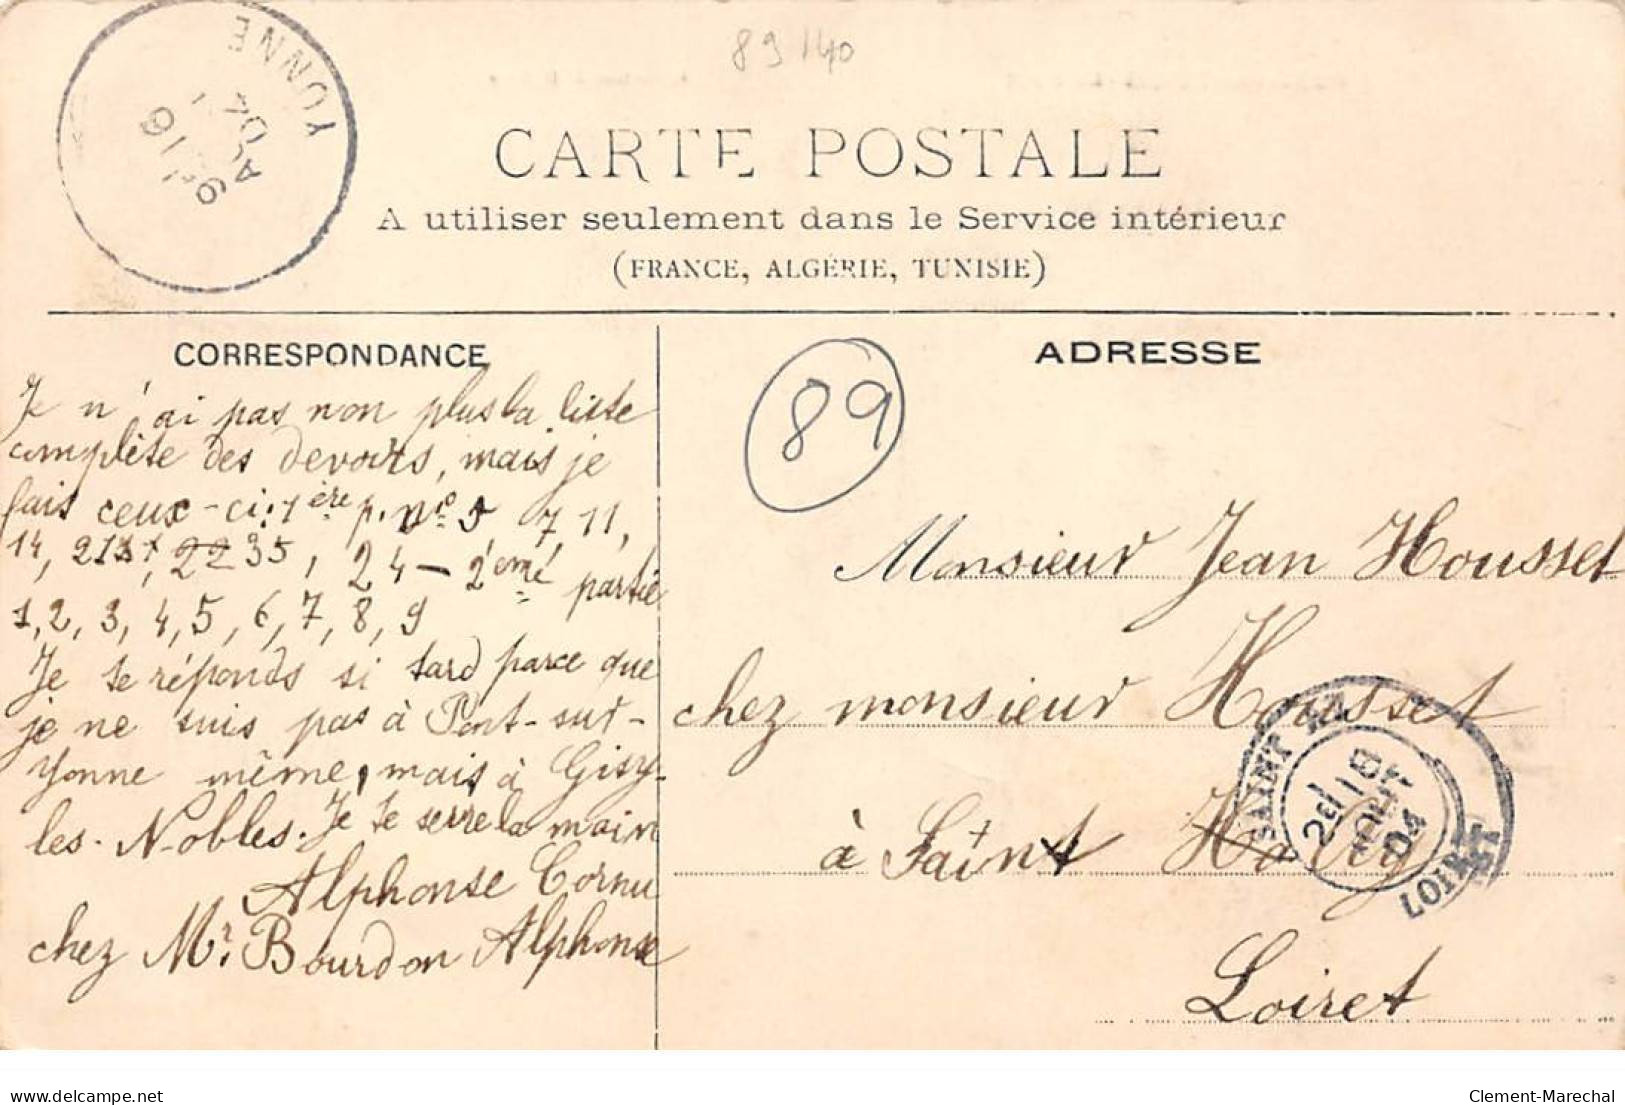 YONNE
9E 16
AOUT 04
89140
CARTE POSTALE
A utiliser seulement dans le Service intérieur
(FRANCE, ALGÉRIE, TUNISIE)
CORRESPONDANCE
Je n'ai pas non plus la liste
complète des devoirs, mais je
fais ceux-ci: 1ère p. nº 5 7, 11,
14, 35, 24 - 2ème partie
1, 2, 3, 4, 5, 6, 7, 8, 9
Je te réponds si tard parce que
je ne suis pas à Pont-sur-
Yonne même, mais à Gisy-
les-Nobles. Je te serre la main
Alphonse Cornu
chez Mr. Bourdon Alphonse
ADRESSE
89
Monsieur Jean Housset
chez monsieur Housset
à Saint Hay
Loiret
SAINT AY
2E 18
AOUT
04
LOIRET
delcampe.net
Clement-Marechal